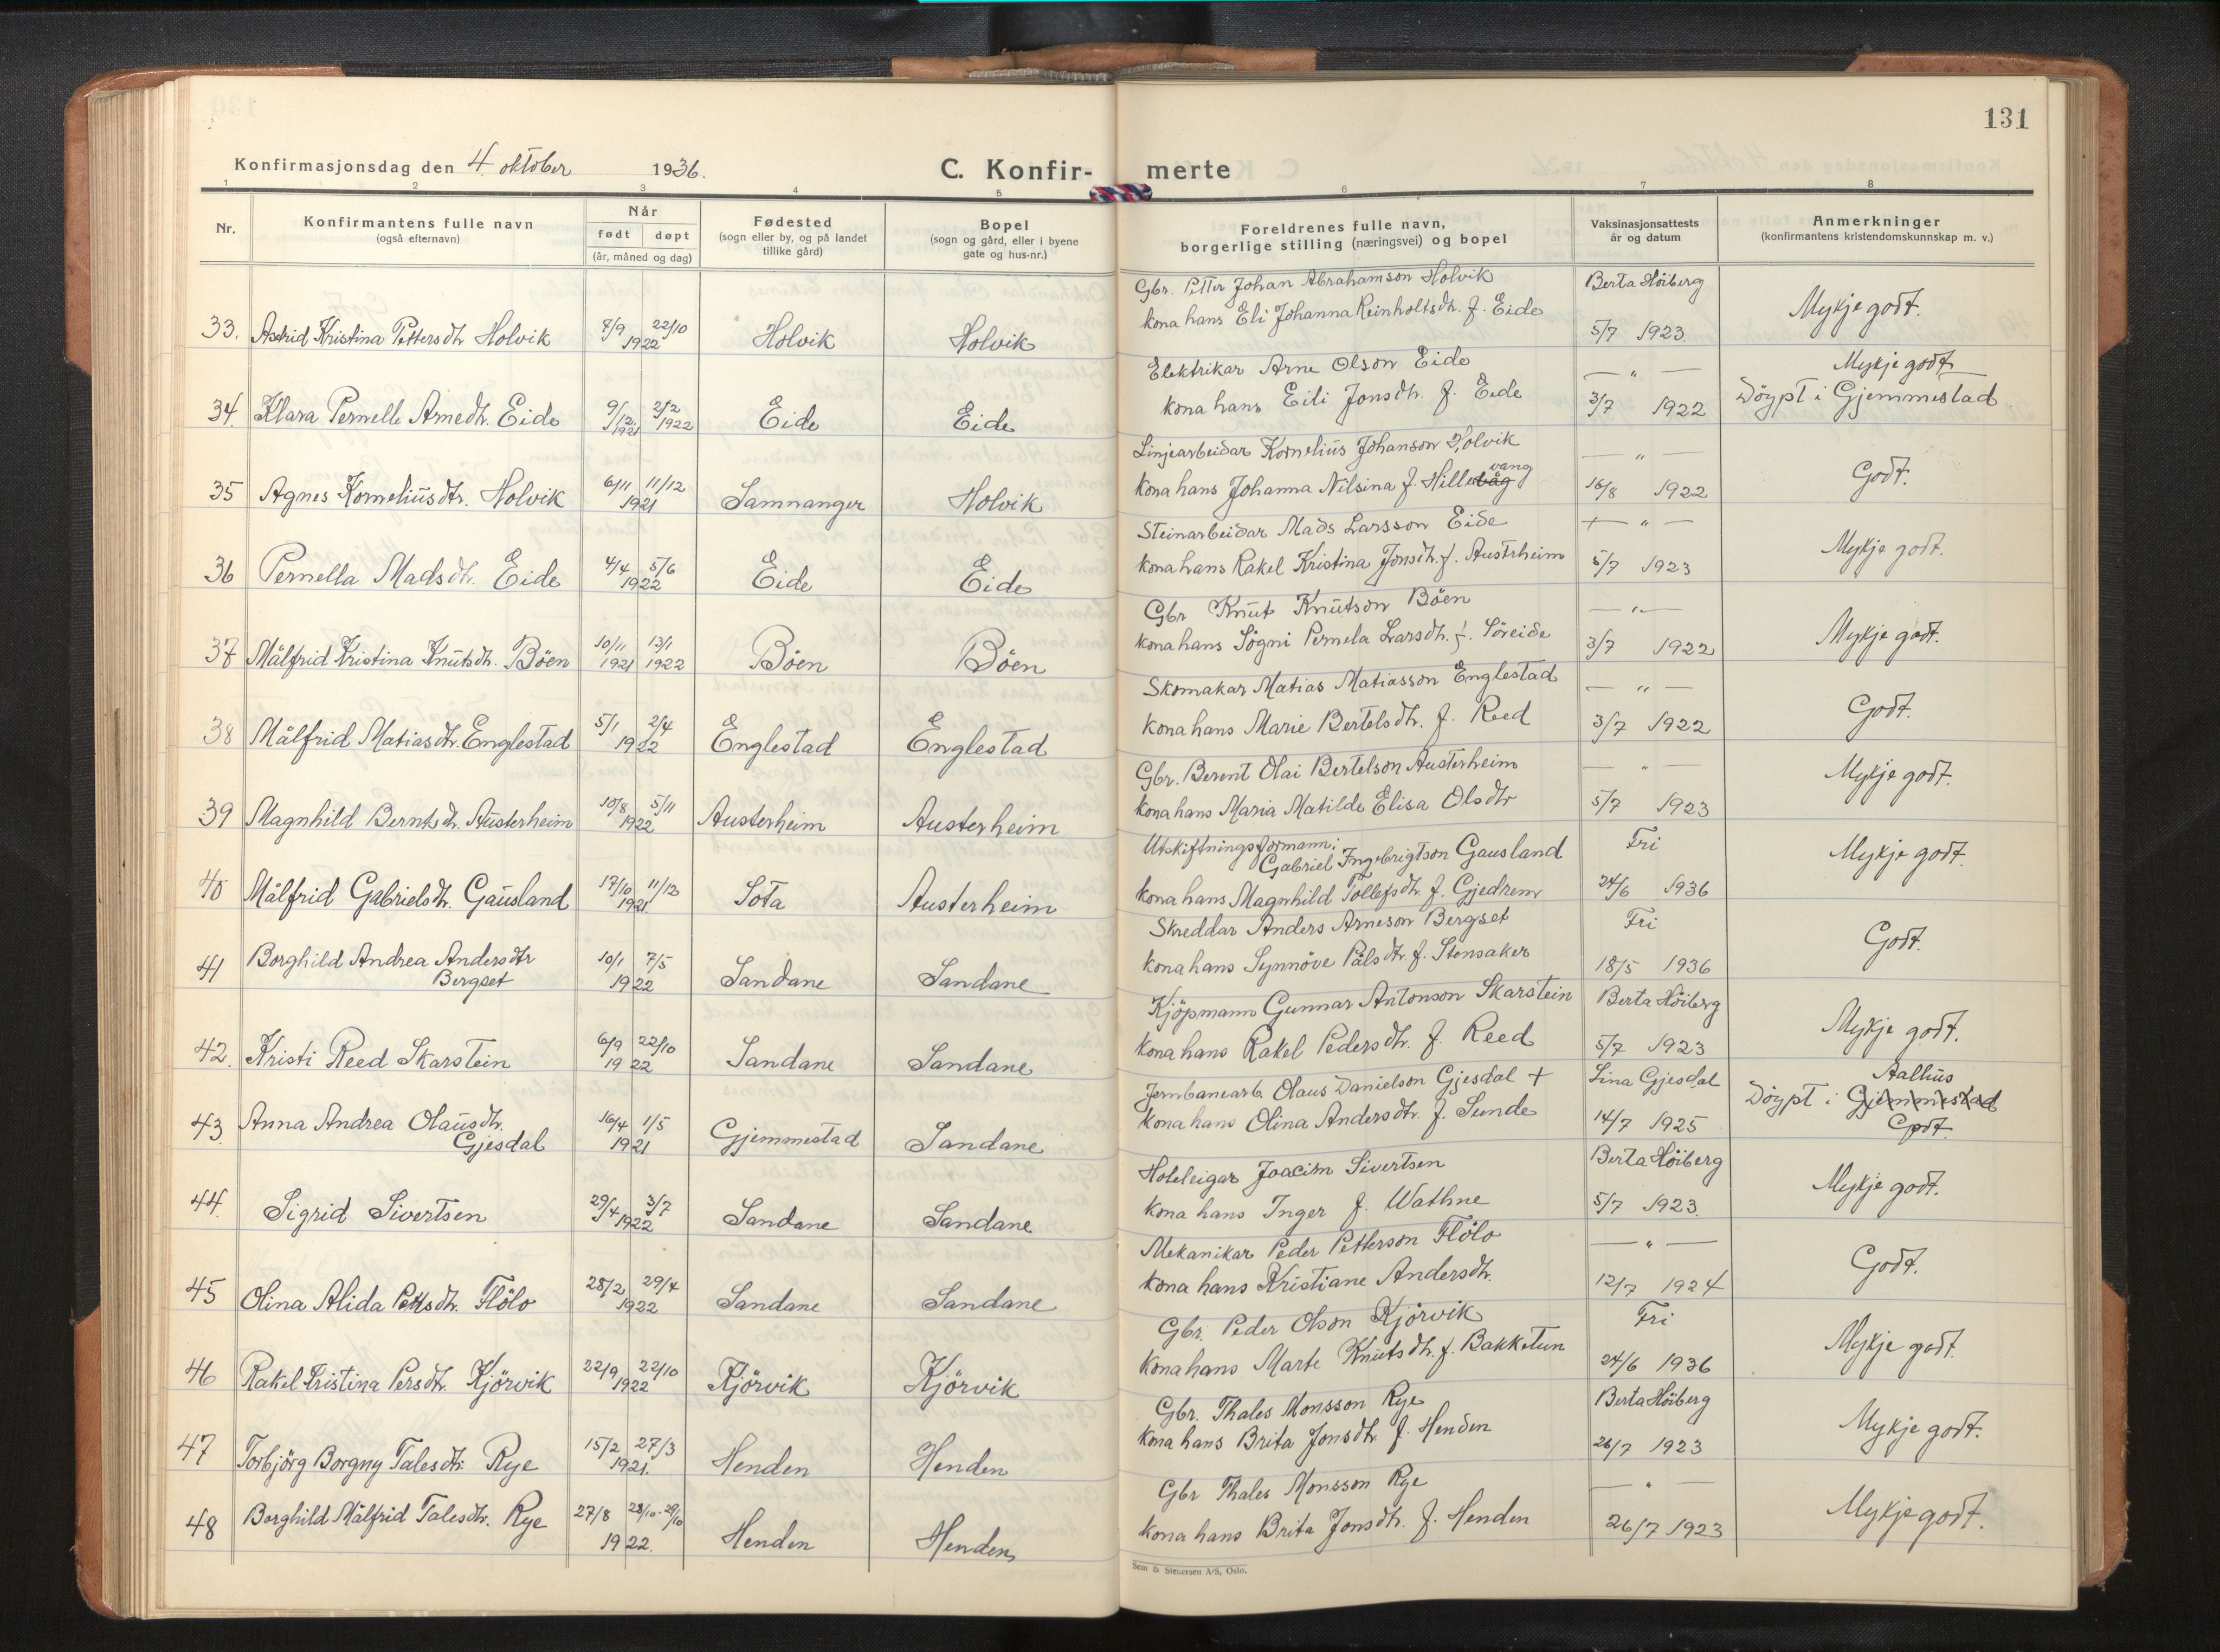 131
Konfirmasjonsdag den 4. oktober 1936.
C. Konfir- merte
1 2 3 4 5 6 7 8
Nr.
Konfirmantens fulle navn
(også efternavn)
Når
født døpt
(år, måned og dag)
Fødested
(sogn eller by, og på landet
tillike gård)
Bopel
(sogn og gård, eller i byene
gate og hus-nr.)
Foreldrenes fulle navn,
borgerlige stilling (næringsvei) og bopel
Vaksinasjonsattests
år og datum
Anmerkninger
(konfirmantens kristendomskunnskap m. v.)
Gbr. Petter Johan Abrahamson Holvik Berta Höiberg
33. Astrid Kristina Pettersdtr Holvik 8/9 22/10 1922 Holvik Holvik kona hans Eli Johanna Reinholtsdtr. f. Eide 5/7 1923. Mykje godt.
Elektrikar Arne Olson Eide — " — Mykje godt
34. Klara Pernelle Arnedtr. Eide 9/12 1921 2/2 1922 Eide Eide kona hans Eili Jonsdtr. f. Eide 3/7 1922 Döypt i Gjemmestad.
Linjearbeidar Kornelius Johanson Holvik — " —
35 Agnes Korneliusdtr. Holvik 6/11 11/12 1921 Samnanger Holvik kona hans Johanna Nilsina f. Hillebåg vang 16/8 1922 Godt.
Steinarbeidar Mads Larsson Eide — " —
36 Pernella Madsdtr. Eide 4/4 5/6 1922 Eide Eide kona hans Rakel Kristina Jonsdtr. f. Austrheim 5/7 1923 Mykje godt.
Gbr Knut Knutson Böen — " —
37 Målfrid Kristina Knutsdtr. Böen 10/11 1921 13/1 1922 Böen Böen kona hans Sögni Pernela Larsdtr. f. Söreide 3/7 1922 Mykje godt.
Skomakar Matias Matiasson Englestad — " —
38 Målfrid Matiasdtr. Englestad 5/1 2/4 1922 Englestad Englestad kona hans Marie Bertelsdtr. f. Reed 3/7 1922 Godt.
Gbr. Berent Olai Bertelson Austerheim — " —
39 Magnhild Berntsdtr. Austerheim 10/8 5/11 1922 Austerheim Austerheim kona hans Maria Matilde Elisa Olsdtr 5/7 1923 Mykje godt.
Utskiftningsformann: Fri
Gabriel Ingebrigtson Gausland
40 Målfrid Gabrielsdtr. Gausland 17/10 11/12 1921. Sota Austerheim kona hans Magnhild Tollefsdtr f. Gjedrem 24/6 1936 Mykje godt.
Skreddar Anders Arneson Bergset Fri
41 Borghild Andrea Andersdtr
Bergset 10/1 7/5 1922 Sandane Sandane kona hans Synnöve Pålsdtr. f. Stensaker 18/5 1936 Godt.
Kjöpmann Gunnar Antonson Skarstein Berta Höiberg
42. Kristi Reed Skarstein 6/9 22/10 1922 Sandane Sandane kona hans Rakel Pedersdtr. f. Reed 5/7 1923 Mykje godt.
Jernbanearb. Olaus Danielson Gjesdal + Lina Gjesdal Aalhus
43. Anna Andrea Olausdtr.
Gjesdal 16/4 1/5 1921 Gjemmestad Sandane kona hans Olina Andersdtr. f. Sunde 14/7 1925 Döypt i Gjemmestad
Godt.
Hoteleigar Joacim Sivertsen Berta Höiberg
44. Sigrid Sivertsen 29/4 3/7 1922 Sandane Sandane kona hans Inger f. Wathne 5/7 1923. Mykje godt.
Mekanikar Peder Petterson Flölo — " —
45 Olina Alida Pettsdtr. Flölo 28/2 29/4 1922 Sandane Sandane kona hans Kristiane Andersdtr. 12/7 1924 Godt.
Gbr. Peder Olson Kjörvik Fri
46 Rakel Kristina Persdtr. Kjörvik 22/9 22/10 1922 Kjörvik Kjörvik kona hans Marte Knutsdtr. f. Bakketun 24/6 1936 Mykje godt.
Gbr. Thales Monsson Rye Berta Höiberg
47 Torbjörg Borgny Talesdtr. Rye 15/2 27/3 1921. Henden Henden kona hans Brita Jonsdtr f. Henden 26/7 1923 Mykje godt.
Gbr Thales Monsson Rye — " —
48 Borghild Målfrid Talesdtr. Rye 27/8 28/10-29/10 1922. Henden Henden kona hans Brita Jonsdtr. f. Henden 26/7 1923 Mykje godt.
Sem & Stenersen A/S, Oslo.